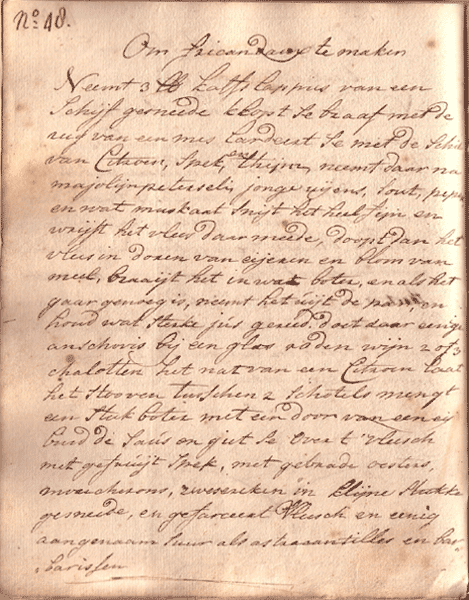 No. 48.
Om fricandaux te maken
Neemt 3 lb kalfslappies van een
Schijf gesneede klopt se braaf met de
rug van een mes lardeert se met de Schil
van Citroen, Spek, en thijm, neemt daar na
majolijn peterseli, jonge uijens, Sout, peper
en wat muskaat Snijt het heel fijn en
wrijft het vlees daar meede, doopt dan het
vlees in doren van eijeren en blom van
meel, braaijt het in wat boter, en als het
gaar genoeg is, neemt het uijt de pan, en
houd wat Sterke jus gereed, doet daar eenige
anschovis bij een glas roden wijn 2 of 3
chalotten het nat van een Citroen laat
het Stooven tusschen 2 Schotels mengt
een Stuk boter met een door van een eij
bind de Saus en giet se over t' vleesch
met gefruijt Spek, met gebrade oesters,
zweesereken in klijne Stukke
gesneede, en gefarceert Vleesch en eenig
aangenaam Suur als en bar-
barissen